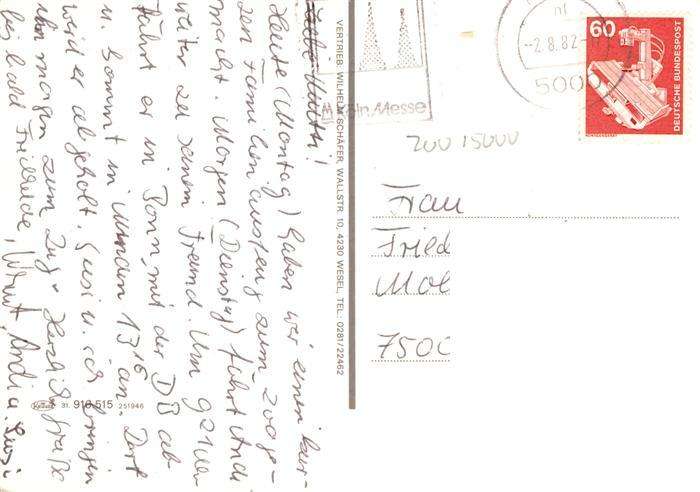 Liebe Mutti!
Heute (Montag) haben wir einen kur-
zen Familienausflug zum Zoo ge-
macht. Morgen (Dienstag) fährt Andi
weiter zu seinem Freund. Um 9 21 Uhr
fährt er in Bonn mit der DB ab
u. kommt in München 13 16 an. Dort
wird er abgeholt. Susi u. ich bringen
ihn morgen zum Zug. Herzliche Grüße
bis bald Friedhilde, Andi u. Susi
VERTRIEB: WILHELM SCHÄFER, WALLSTR. 10, 4230 WESEL, TEL.: 0281/22462
31. 910 515 251946
Köln Messe
-2.8.82
5000
60
DEUTSCHE BUNDESPOST
200 15000
Frau
Fried
Mol
750